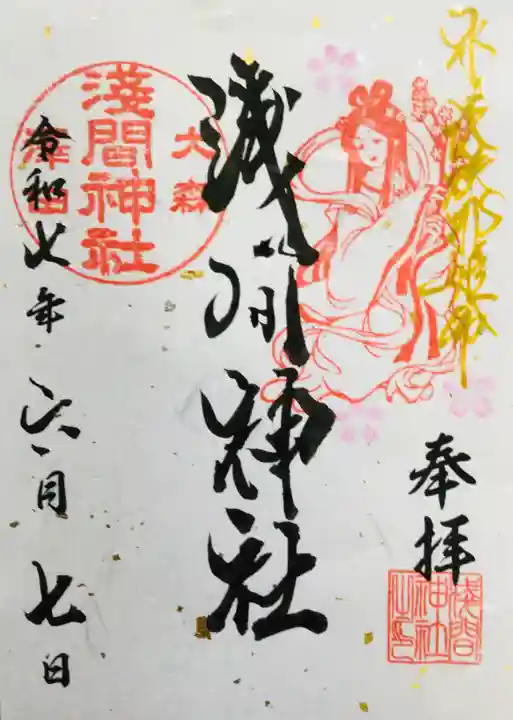 木花咲耶姫命
奉拝
淺間神社
浅間神社之印
大森
淺間神社
澤田
令和七年六月七日